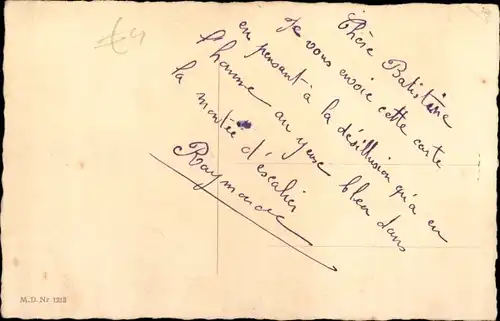 £4
Chère Batistine
Je vous envoie cette carte
en pensant à la désillusion qu'a eu
l'homme au yeuse bleu dans
la montée d'escalier
Raymonde
M.D. Nr 1212